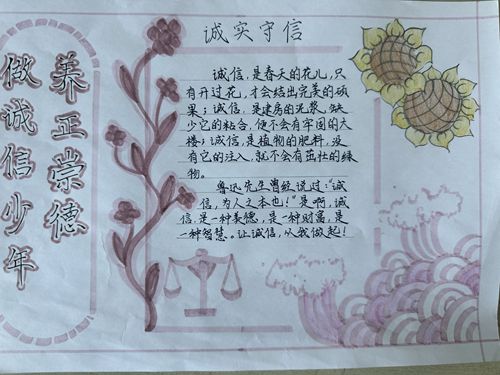 养正崇德
做诚信少年
诚实守信
诚信,是春天的花儿,只
有开过花,才会结出完美的硕
果;诚信,是建房的泥浆,缺
少它的粘合,便不会有牢固的大
楼;诚信,是植物的肥料,没
有它的注入,就不会有茁壮的绿
物。
鲁迅先生曾经说过:“诚
信,为人之本也!”是啊,诚
信,是一种美德,是一种财富,是
一种智慧。让诚信,从我做起!